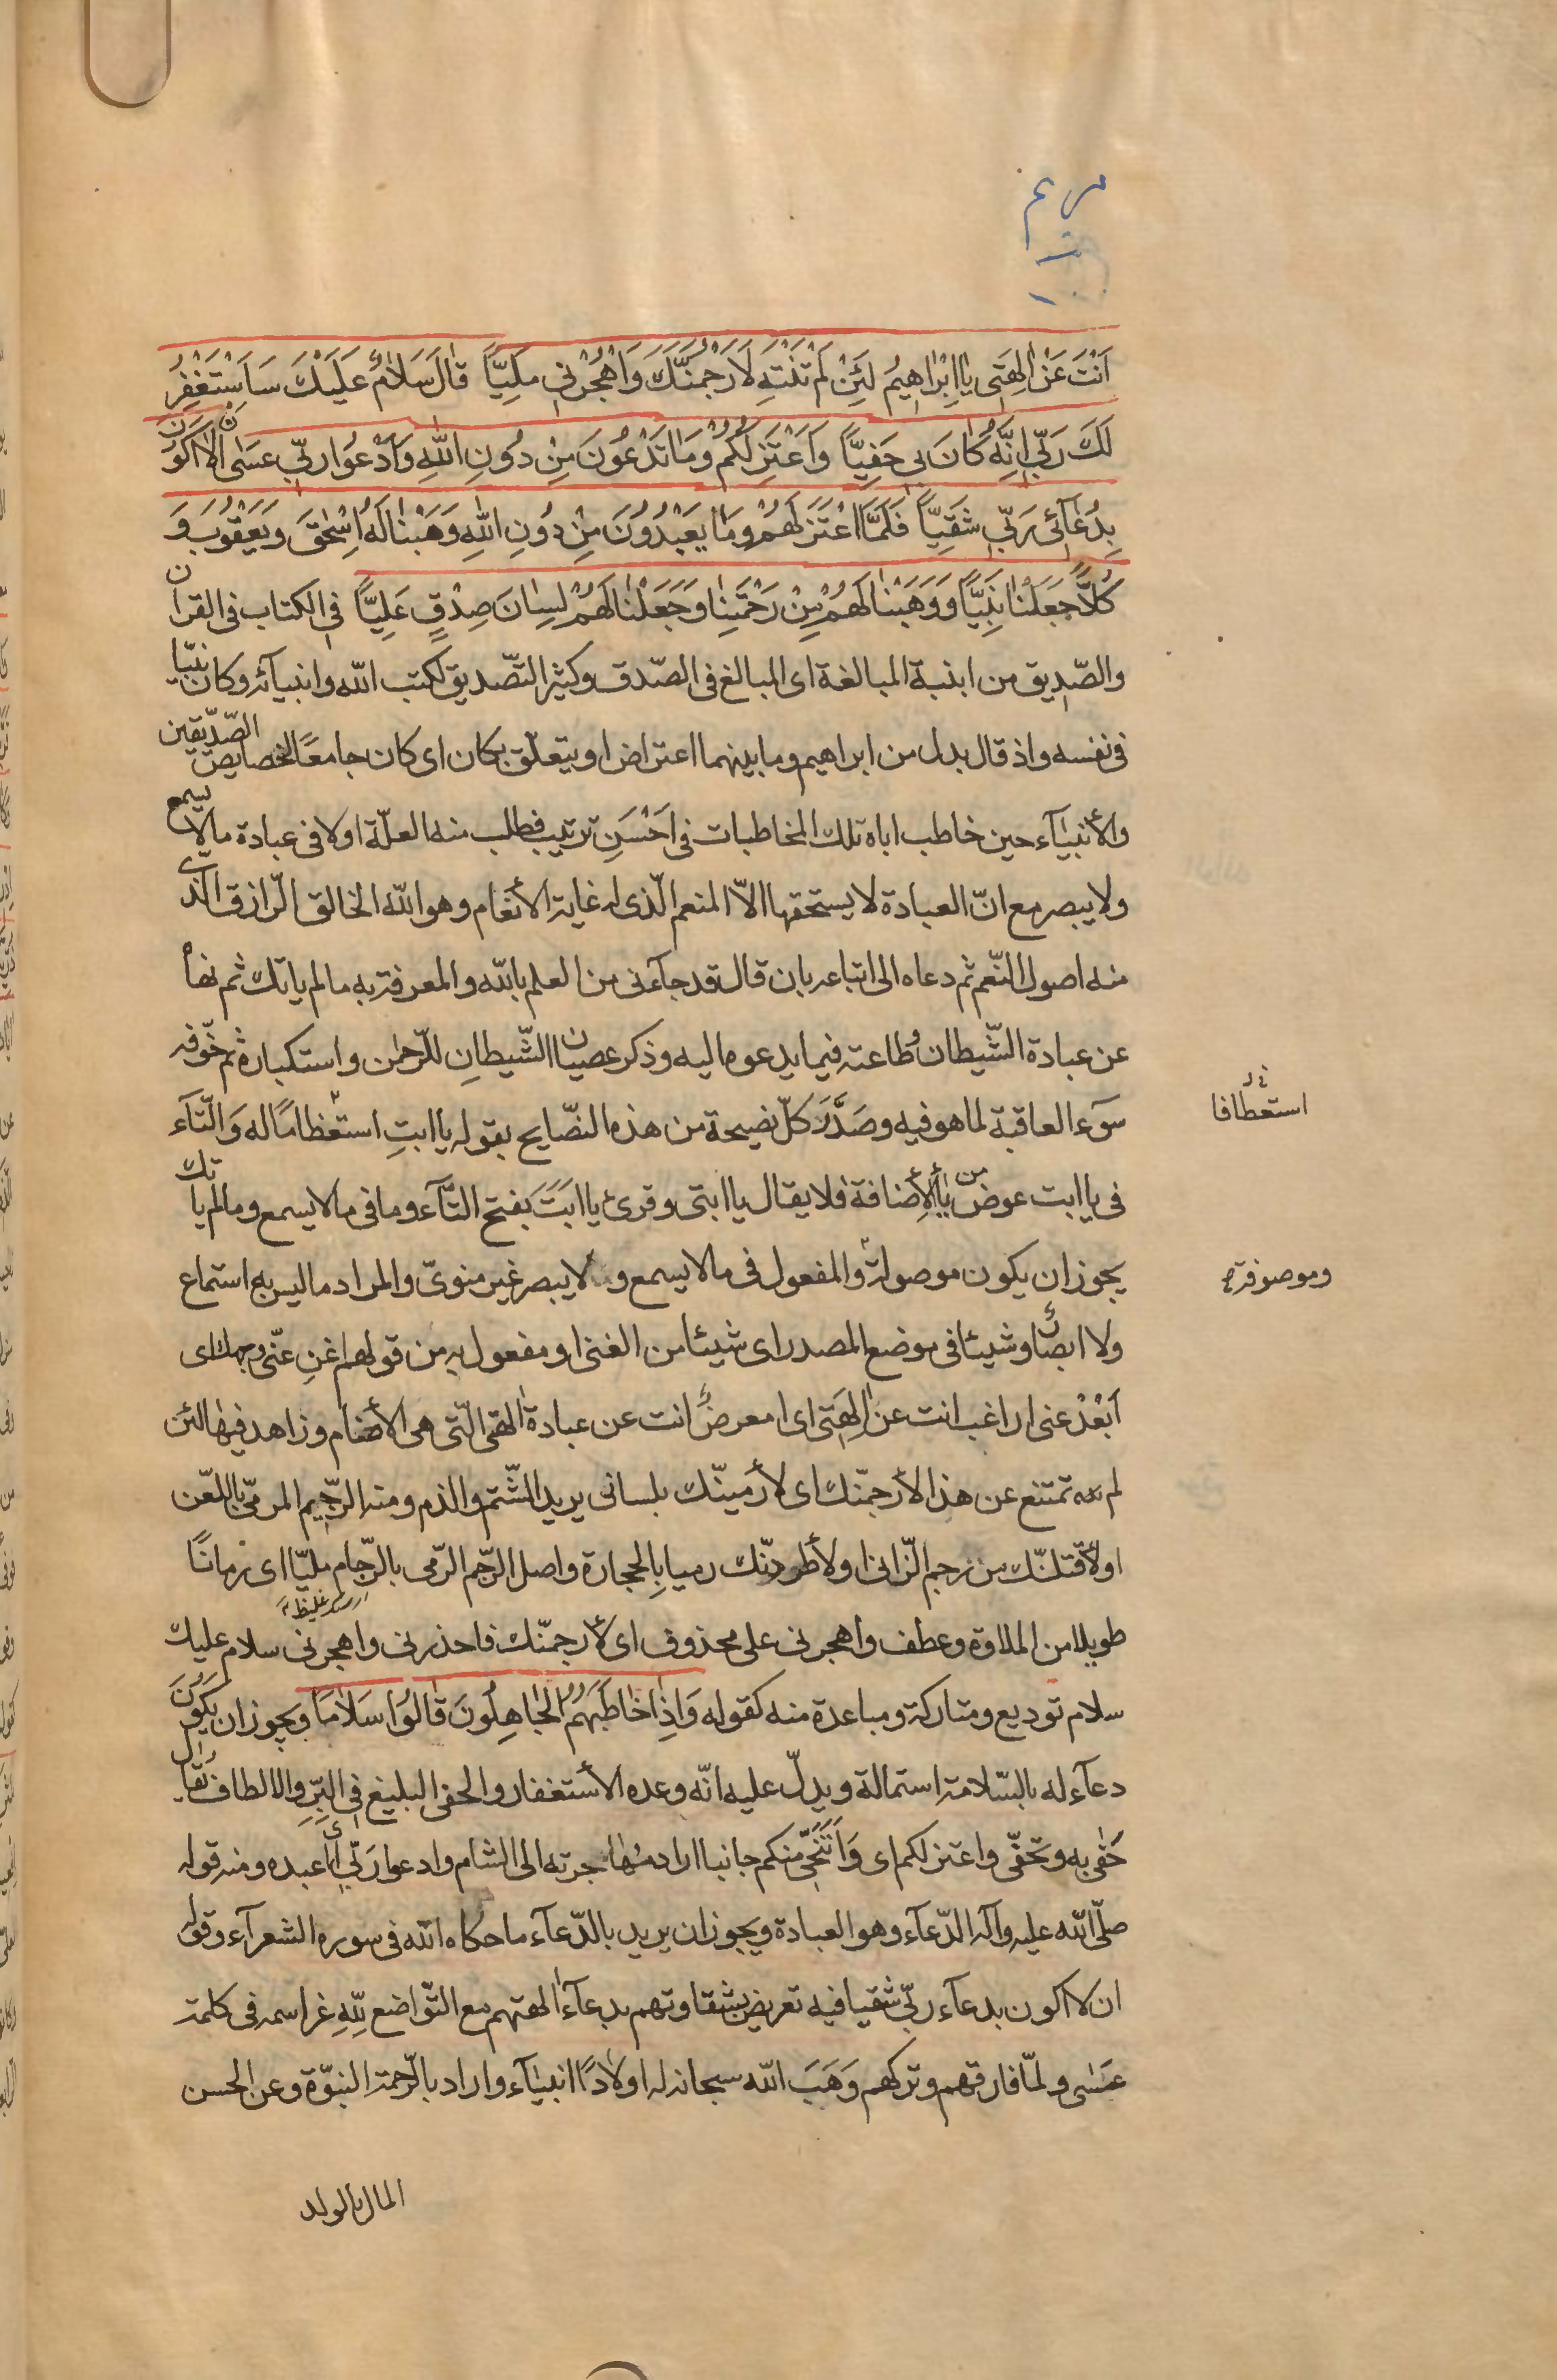 مريم
اَنْتَ عَنْ اٰلِهَتى يا اِبْراهيمُ لَئِنْ لَمْ تَنْتَهِ لَاَرْجُمَنَّكَ وَاهْجُرْنى مَلِيًّا قالَ سَلامٌ عَلَيْكَ سَاَسْتَغْفِرُ
لَكَ رَبّى اِنَّهُ كانَ بى حَفِيًّا وَاَعْتَزِلُكُمْ وَما تَدْعُونَ مِنْ دُونِ اللّهِ وَاَدْعُوا رَبّى عَسى اَلّا اَكُونَ
بِدُعآئِ رَبّى شَقِيًّا فَلَمَّا اعْتَزَلَهُمْ وَما يَعْبُدُونَ مِنْ دُونِ اللّهِ وَهَبْنا لَهُ اِسْحٰقَ وَيَعْقُوبَ وَ
كُلًّا جَعَلْنا نَبِيًّا وَوَهَبْنا لَهُمْ مِنْ رَحْمَتِنا وَجَعَلْنا لَهُمْ لِسانَ صِدْقٍ عَلِيًّا فى الكتاب فى القران
والصّديق من ابنية المبالغة اى المبالغ فى الصّدق وكثير التّصديق لكتب اللّه وانبيآئه وكان نبيّا
فى نفسه واذ قال بدل من ابراهيم وما بينهما اعتراض او يتعلّق بكان اى كان جامعًا لخصايص الصّدّيقين
والأنبيآء حين خاطب اباه تلك المخاطبات فى احْسَنِ ترتيب فطلب منه العلّة اولا فى عبادة مالا يسمع
ولا يبصر مع انّ العبادة لا يستحقها الاّ المنعم الّذى له غاية الأنعام وهو اللّه الخالق الرّازق الّذى
منه اصول النّعم ثم دعاه الى اتباعه بان قال قد جآءنى من العلم باللّه والمعرفة به مالم ياتك ثم نهاه
عن عبادة الشّيطان وطاعته فيما يدعوه اليه وذكر عصيان الشّيطانِ للرّحمن واستكباره ثم خوّفه
سوء العاقبة لما هو فيه وصَدَّرَ كلّ نصيحة من هذه النصّايح بقوله يا ابتِ استعظامًا له وَالتّآء
استعطافا
فى يا ابت عوض من يآء الأِضافة فلا يقال يا ابتى وقرئ يا ابَتَ بفتح التّآء وما فى مالا يسمع ومالم ياتك
يجوز ان يكون موصولة والمفعول فى مالا يسمع ولا يبصر غير منوىّ والمراد ما ليس به استماع
وموصوفة
ولا ابصار وشيئا فى موضع المصدر اى شيئا من الغنا او مفعول به من قولهم اغنِ عنّى وجهك اى
اَبْعُدْ عنى اراغب انت عن اٰلِهَتى اى امعرضٌ انت عن عبادة اٰلهتى الّتى هى الأصنام وزاهد فيها لئن
لم تمتنع عن هذا لأرجمنّك اى لأرمينّك بلسانى يريد الشّتم والذم ومنه الرّجيم المرمىّ باللعّن
اولأقتلنّك من رجم الزّانى اولأطردنّك رميا بالحجارة واصل الرّجم الرّمى بالرّجام مليّا اى زمانًا
طويلا من الملاوة وعطف واهجرنى على محذوف اى لأرجمنّك فاحذرنى واهجرنى سلام عليك
سلام توديع ومتاركة ومباعدة منه كقوله وَاِذا خاطَبَهُمُ الْجاهِلُونَ قالُوا سَلامًا ويجوز ان يكون
دعآء له بالسّلامة استمالة ويدلّ عليه انّه وعده الأستغفار والحفى البليغ فى البِّرِ والالطاف يُقال
حَفى به وتحفّى واعتزلكم اى وَاَتَنَحّى منكم جانبا اراد مهاجرته الى الشام وادعوا رَبّى اى اعبده ومنه قوله
صلّى اللّه عليه وآله الدّعآء هو العبادة ويجوز ان يريد بالدّعآء ما حكاه اللّه فى سوره الشعرآء وقوله
ان لا اكون بدعآء ربّى شقيا فيه تعريض بشقاوتهم بدعآء اٰلهتهم مع التّواضع لِلّهِ عز اسمه فى كلمة
عَسٰى ولمّا فارقهم وتركهم وَهَبَ اللّه سبحانه له اولادًا انبيآء واراد بالرّحمة النبوّة وعن الحسن
المال والولد